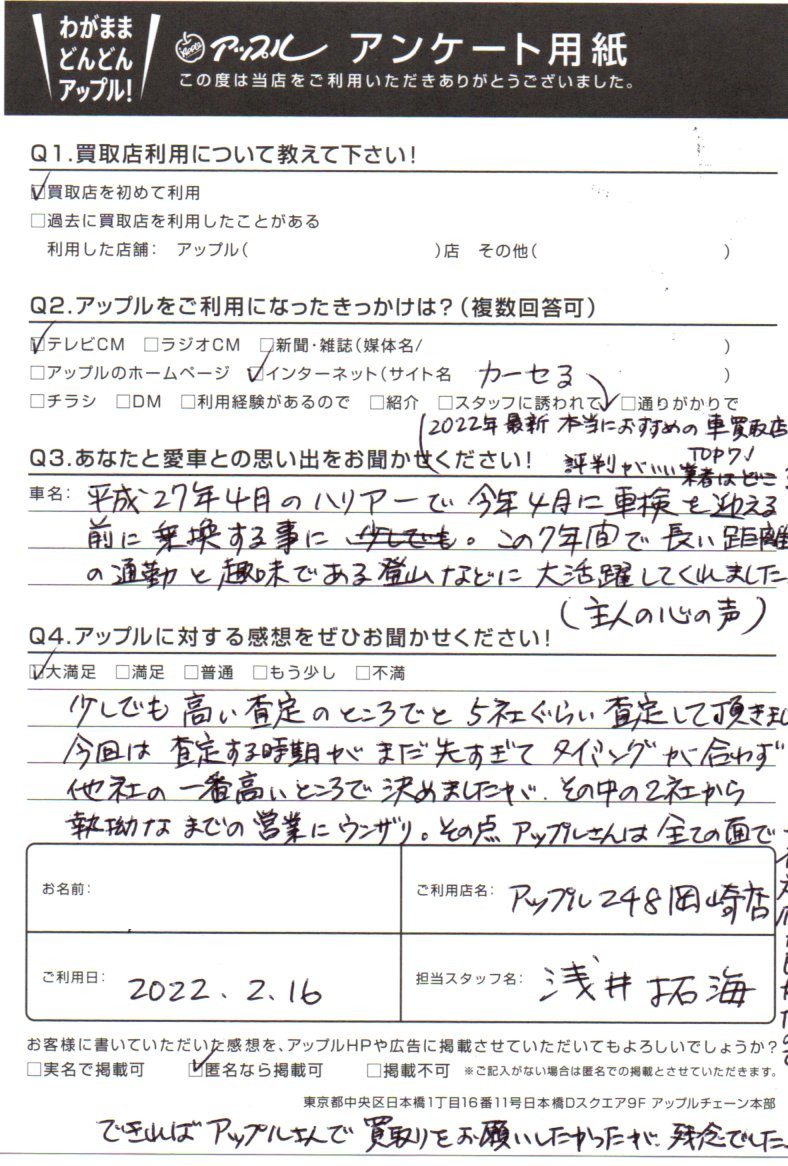 わがまま
どんどん
アップル!
アップル アンケート用紙
この度は当店をご利用いただきありがとうございました。
Q1.買取店利用について教えて下さい!
☑買取店を初めて利用
□過去に買取店を利用したことがある
利用した店舗: アップル( )店 その他( )
Q2.アップルをご利用になったきっかけは?(複数回答可)
☑テレビCM □ラジオCM □新聞・雑誌(媒体名/ )
□アップルのホームページ ☑インターネット(サイト名 カーセる )
□チラシ □DM □利用経験があるので □紹介 □スタッフに誘われて □通りがかりで
2022年最新 本当におすすめの車買取店
TOP7!
評判がいい業者はどこ
Q3.あなたと愛車との思い出をお聞かせください!
車名: 平成27年4月のハリアーで今年4月に車検を迎える
前に乗換する事に 少しでも。この7年間で長い距離
の通勤と趣味である登山などに大活躍してくれました
(主人の心の声)
Q4.アップルに対する感想をぜひお聞かせください!
☑大満足 □満足 □普通 □もう少し □不満
少しでも高い査定のところでと5社ぐらい査定して頂きまし
今回は査定する時期がまだ先すぎてタイミングが合わず
他社の一番高いところで決めましたが、その中の2社から
執拗なまでの営業にウンザリ。その点アップルさんは全ての面で
お名前:
ご利用店名: アップル248岡崎店
ご利用日: 2022.2.16
担当スタッフ名: 浅井拓海
お客様に書いていただいた感想を、アップルHPや広告に掲載させていただいてもよろしいでしょうか?
□実名で掲載可 ☑匿名なら掲載可 □掲載不可 ※ご記入がない場合は匿名での掲載とさせていただきます。
東京都中央区日本橋1丁目16番11号日本橋Dスクエア9F アップルチェーン本部
できればアップルさんで買取りをお願いしたかったが、残念でした